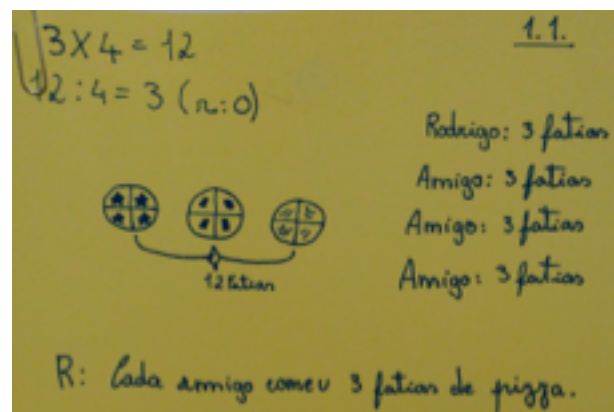 1.1.
3 X 4 = 12
12 : 4 = 3 (r:0)
Rodrigo: 3 fatias
Amigo: 3 fatias
Amigo: 3 fatias
Amigo: 3 fatias
12 fatias
R: Cada amigo comeu 3 fatias de pizza.